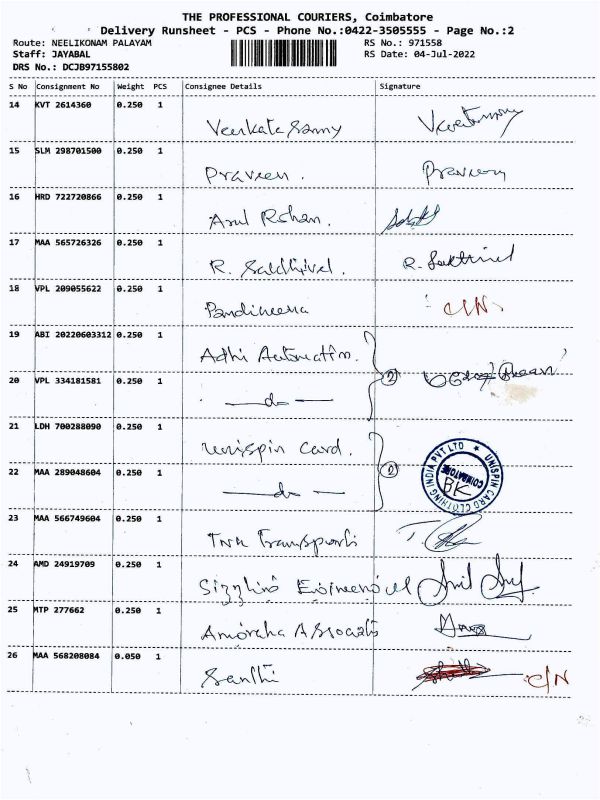 THE PROFESSIONAL COURIERS, Coimbatore
Delivery Runsheet - PCS - Phone No.:0422-3505555 - Page No.:2
Route: NEELIKONAM PALAYAM
RS No.: 971558
Staff: JAYABAL
RS Date: 04-Jul-2022
DRS No.: DCJB97155802
S No Consignment No Weight PCS Consignee Details Signature
14 KVT 2614360 0.250 1
Venkata Samy
15 SLM 298701500 0.250 1
Praveen . Praveen
16 HRD 722720866 0.250 1
Arul Rohan.
17 MAA 565726326 0.250 1
R. Sakthivel . R. Sakthivel
18 VPL 209055622 0.250 1
Pandimeena C/N
19 ABI 20220603312 0.250 1
Adhi Automation.
20 VPL 334181581 0.250 1
— do — 2
21 LDH 700288090 0.250 1
Unispin Card.
22 MAA 289048604 0.250 1
— do — 2
UNISPIN CARD CLOTHING INDIA PVT LTD ★
COIMBATORE
BK
23 MAA 566749604 0.250 1
Transports
24 AMD 24919709 0.250 1
25 MTP 277662 0.250 1
Associates
26 MAA 568208084 0.050 1
Santhi C/N